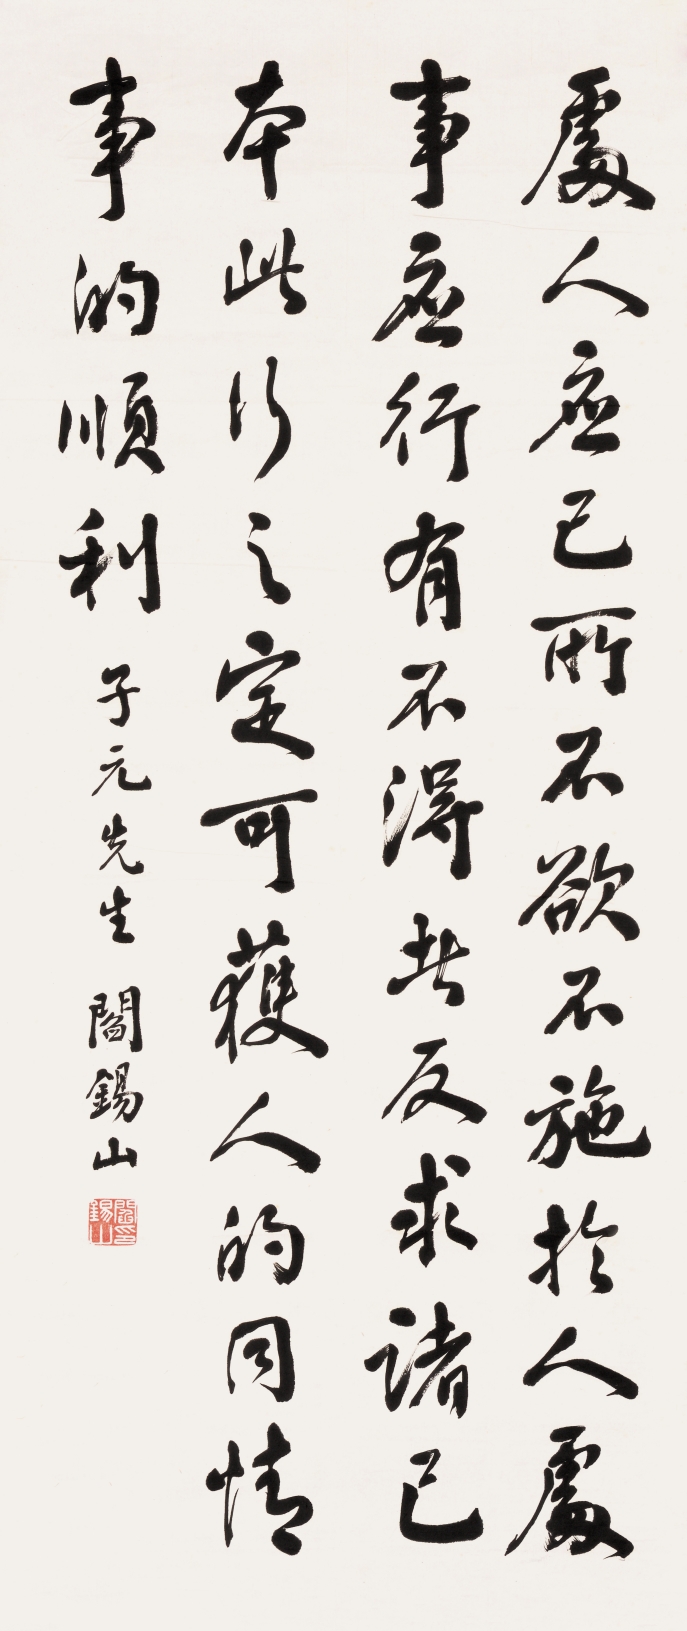 處人應己所不欲不施於人處
事應行有不得者反求諸己
本此行之定可獲人的同情
事的順利
子元先生 閻錫山
閻錫山印